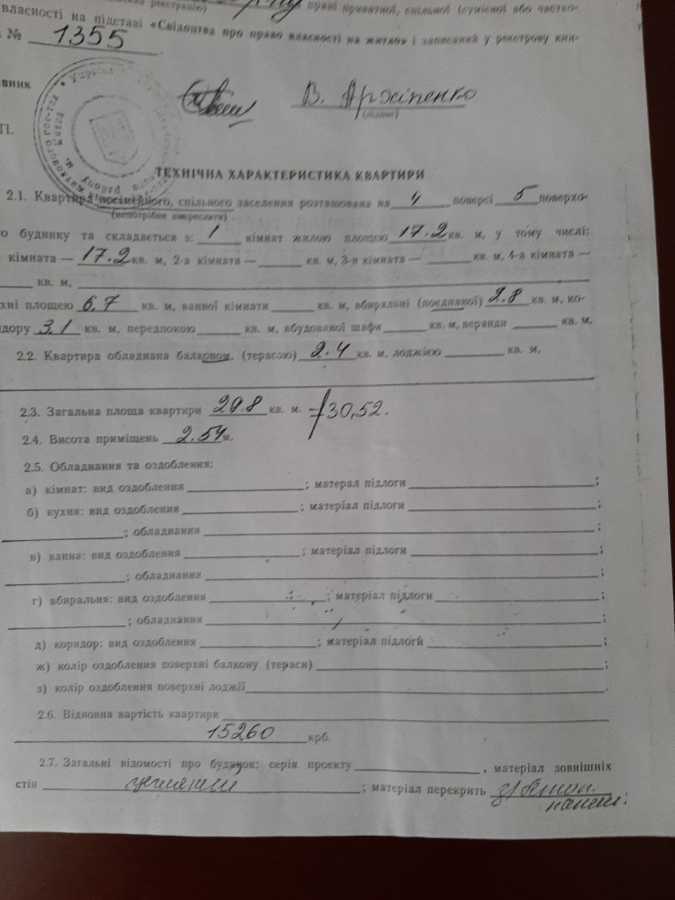 праві приватної, спільної (сумісної або частко-
власності на підставі «Свідоцтва про право власності на житло» і записаний у реєстрову кни-
№ 1355
В. Архіпенко
ТЕХНІЧНА ХАРАКТЕРИСТИКА КВАРТИРИ
2.1. Квартира посімейного, спільного заселення розташована на 4 поверсі 5 поверхо-
(непотрібне викреслити)
го будинку та складається з: 1 кімнат жилою площею 17.2 кв. м, у тому числі:
кімната — 17.2 кв. м, 2-а кімната — кв. м, 3-я кімната — кв. м, 4-а кімната —
кв. м,
хні площею 6,7 кв. м, ванної кімнати кв. м, вбиральні (поєднаної) 2.8 кв. м, ко-
идору 3,1 кв. м, передпокою кв. м, вбудованої шафи кв. м, веранди кв. м,
2.2. Квартира обладнана балконом, (терасою) 2.4 кв. м, лоджією кв. м,
2.3. Загальна площа квартири 29.8 кв. м. 30,52.
2.4. Висота приміщень 2.54 м.
2.5. Обладнання та оздоблення:
а) кімнат: вид оздоблення ; матерал підлоги ;
б) кухня: вид оздоблення ; матеріал підлоги
; обладнання ;
в) ванна: вид оздоблення ; матеріал підлоги ;
; обладнання ;
г) вбиральня: вид оздоблення ; матеріал підлоги ;
; обладнання ;
д) коридор: вид оздоблення ; матеріал підлоги ;
ж) колір оздоблення поверхні балкону (тераси) ;
з) колір оздоблення поверхні лоджії .
2.6. Відновна вартість квартири
15260 крб.
2.7. Загальні відомості про будинок: серія проекту , матеріал зовнішніх
стін цегляний ; матеріал перекрить
панелі.